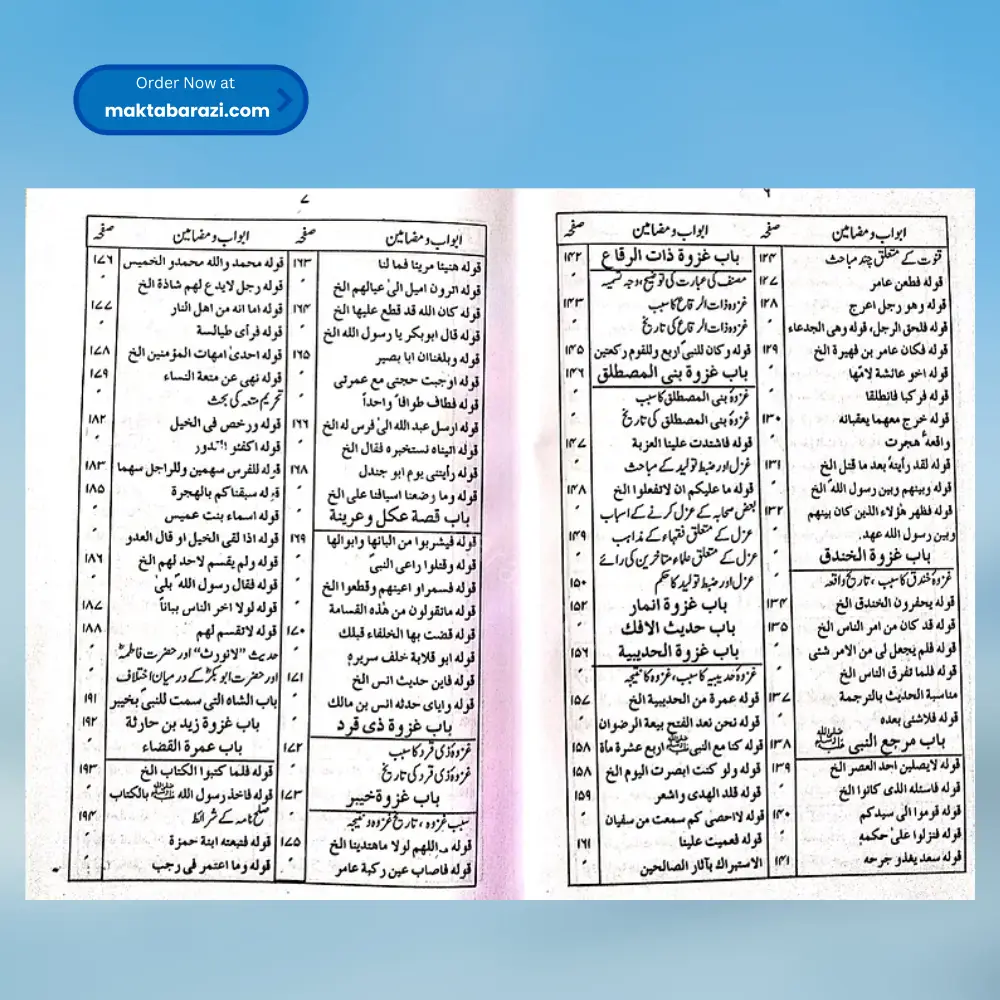 Order Now at
maktabarazi.com
٦
ابواب و مضامین صفحہ
قنوت کے متعلق چند مباحث ۱۲۴
قوله فطعن عامر ۱۲۷
قوله وهو رجل اعرج ۱۲۸
قوله فلحق الرجل، قوله وهى الجدعاء
قوله فكان عامر بن فهيرة الخ ۱۲۹
قوله اخو عائشة لامّها "
قوله فركبا فانطلقا "
قوله خرج معهما يعقبانه ۱۳۰
واقعۂ هجرت "
قوله لقد رأيتهٗ بعد ما قتل الخ ۱۳۱
قوله وبينهم وبين رسول الله الخ "
قوله فظهر هؤلاء الذين كان بينهم ۱۳۲
وبين رسول الله عهد.
باب غزوة الخندق "
غزوۂ خندق کا سبب، تاریخ واقعہ "
قوله يحفرون الخندق الخ ۱۳۴
قوله قد كان من امر الناس الخ ۱۳۵
قوله فلم يجعل لى من الامر شئى "
قوله فلما تفرق الناس الخ "
مناسبة الحديث بالترجمة ۱۳۷
قوله فلاشئى بعده "
باب مرجع النبى ﷺ ۱۳۸
قوله لايصلين احد العصر الخ ۱۳۹
قوله فاسئله الذى كانوا الخ "
قوله قوموا الى سيدكم ۱۴۰
قوله فنزلوا على حكمه "
قوله سعد يغذو جرحه ۱۴۱
ابواب و مضامین صفحہ
باب غزوة ذات الرقاع ۱۴۲
مصنف کی عبارت کی توضیح، وجہ تسمیہ "
غزوہ ذات الرقاع کا سبب ۱۴۳
غزوہ ذات الرقاع کی تاریخ "
قوله وكان للنبى اربع وللقوم ركعتين ۱۴۵
باب غزوة بنى المصطلق ۱۴۶
غزوۂ بنی المصطلق کا سبب "
غزوۂ بنی المصطلق کی تاریخ "
قوله فاشتدت علينا العزبة ۱۴۷
عزل اور ضبط تولید کے مباحث "
قوله ما عليكم ان لاتفعلوا الخ ۱۴۸
بعض صحابہ کے عزل کرنے کے اسباب "
عزل کے متعلق فقہاء کے مذاہب ۱۴۹
عزل کے متعلق علماء متاخرین کی رائے "
عزل اور ضبط تولید کا حکم ۱۵۰
باب غزوة انمار ۱۵۲
باب حديث الافك "
باب غزوة الحديبية ۱۵۶
غزوۂ حدیبیہ کا سبب، غزوہ کا نتیجہ "
قوله عمرة من الحديبية الخ ۱۵۷
قوله نحن نعد الفتح بيعة الرضوان "
قوله كنا مع النبى ﷺ اربع عشرة مأة ۱۵۸
قوله ولو كنت ابصرت اليوم الخ ۱۵۸
قوله قلد الهدى واشعر ۱۵۹
قوله لااحصى كم سمعت من سفيان "
قوله فعميت علينا ۱۶۱
الاستبراك بآثار الصالحين "
۷
ابواب و مضامین صفحہ
قوله هنيئا مريئا فما لنا ۱۶۳
قوله اترون اميل الىٰ عيالهم الخ "
قوله كان الله قد قطع عليها الخ ۱۶۴
قوله قال ابوبكر يا رسول الله الخ "
قوله وبلغناان ابا بصير ۱۶۵
قوله اوجبت حجتى مع عمرتى "
قوله فطاف طوافاً واحداً "
قوله ارسل عبد الله الىٰ فرس له الخ ۱۶۶
قوله اتيناه نستخبره فقال الخ "
قوله رأيتنى يوم ابو جندل ۱۶۸
قوله وما وضعنا اسيافنا على الخ "
باب قصة عكل و عرينة "
قوله فيشربوا من البانها وابوالها ۱۶۹
قوله وقتلوا راعى النبى "
قوله فسمراو اعينهم وقطعوا الخ "
قوله ماتقولون من هٰذه القسامة "
قوله قضت بها الخلفاء قبلك ۱۷۰
قوله ابو قلابة خلف سريره "
قوله فاين حديث انس الخ ۱۷۱
قوله واياى حدثه انس بن مالك "
باب غزوة ذى قرد "
غزوۂ ذی قرد کا سبب ۱۷۲
غزوۂ ذی قرد کی تاریخ "
باب غزوۂ خيبر ۱۷۳
سبب غزوہ، تاریخ غزوہ و نتیجہ "
قوله اللهم لولا ماهتدينا الخ ۱۷۵
قوله فاصاب عين ركبة عامر "
ابواب و مضامین صفحہ
قوله محمد والله محمدو الخميس ۱۷۶
قوله رجل لايدع لهم شاذة الخ "
قوله اما انه من اهل النار ۱۷۷
قوله فرأى طيالسة "
قوله احدىٰ امهات المؤمنين الخ ۱۷۸
قوله نهى عن متعة النساء ۱۷۹
تحریم متعہ کی بحث "
قوله ورخص فى الخيل ۱۸۲
قوله اكفئو القدور "
قوله للفرس سهمين وللراجل سهما ۱۸۳
قوله سبقناكم بالهجرة ۱۸۵
قوله اسماء بنت عميس "
قوله اذا لقى الخيل او قال العدو "
قوله ولم يقسم لاحد لهم الخ ۱۸۶
قوله فقال رسول الله بلىٰ "
قوله لولا اخر الناس بباناً ۱۸۷
قوله لاتقسم لهم ۱۸۸
حدیث "لانورث" اور حضرت فاطمہؓ "
اور حضرت ابوبکرؓ کے درمیان اختلاف "
باب الشاه التى سمت للنبى بخيبر ۱۹۱
باب غزوة زيد بن حارثة ۱۹۲
باب عمرة القضاء "
قوله فلما كتبوا الكتاب الخ ۱۹۳
قوله فاخذ رسول الله ﷺ بالكتاب "
صلح نامہ کے شرائط ۱۹۴
قوله فتبعته ابنة حمزة "
قوله وما اعتمر فى رجب "